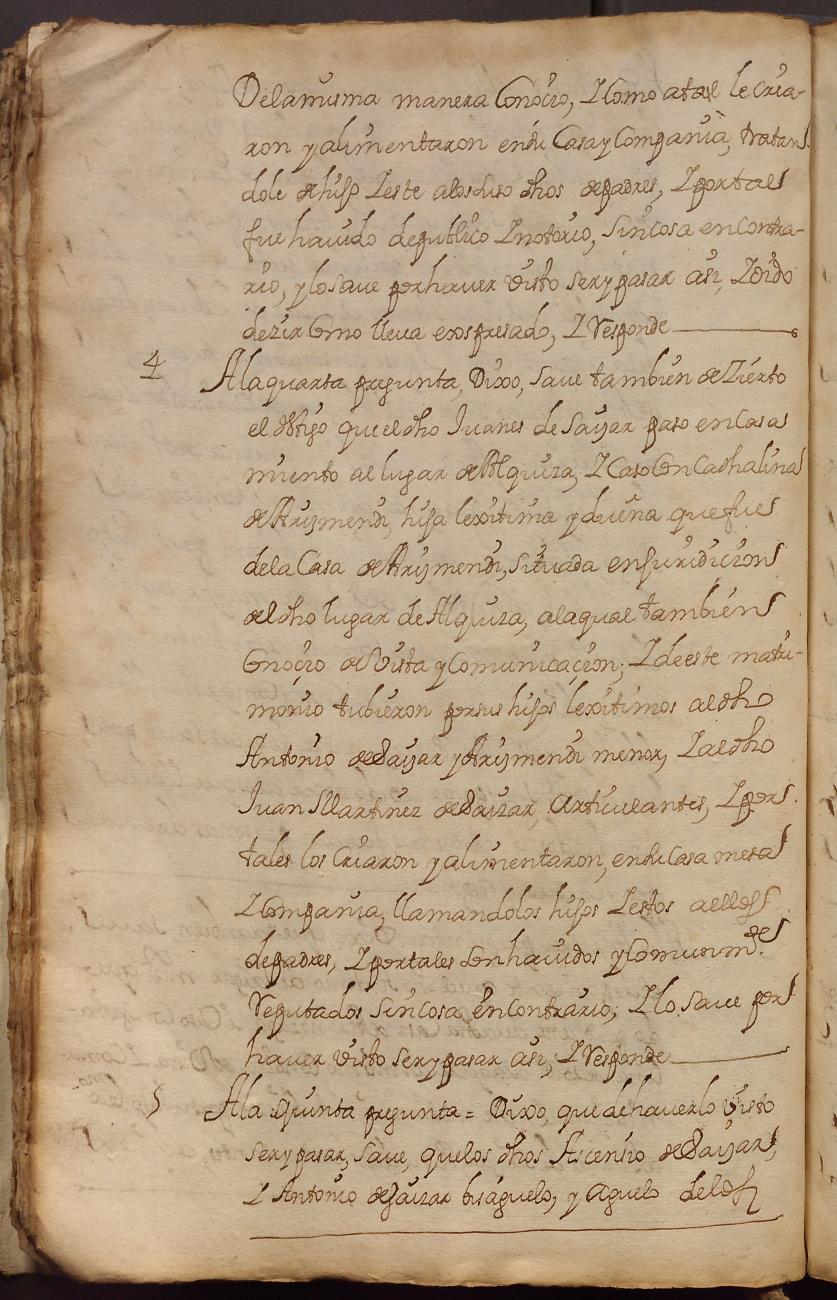 Dela misma manera Conoçio, Y Como atal le Cria-
ron y alimentaron en su Casa y Compania, tratan
dole de hijo Y este alos suso dhos de padres, Y por tal
fue hauido de publico Y notorio, sin Cosa en Contra-
rio, y lo saue por hauer visto ser y pasar asi, Y oido
dezir Como lleua expresado, Y Responde
4 Ala quarta pregunta, Dixo, saue tambien de Zierto
el testigo que el dho Juanes de Sayar paso en Casa
miento al lugar de Alquiza, Y Caso Con Cathalina
de Arijmendi, hija lexitima y dueña que fue
dela Casa de Arijmendi, situada en Juridicion
del dho lugar de Alquiza, ala qual tambien
Conoçio de Vista y Comunicaçion; Y de este matri-
monio tubieron por sus hijos lexitimos al dho
Antonio de Saijar y Arijmendi menor, Y al dho
Juan Martinez de Saizar, Articulantes, Y por
tales los Criaron y alimentaron, en su Casa mesa
Y Compania, llamandolos hijos Y estos a ellos
de padres, Y por tales son hauidos y Comunm.te
Reputados sin Cosa en Contrario; Y lo saue por
hauer visto ser y pasar asi, Y Responde
5 Ala quinta pregunta = Dixo, que de hauerlo Visto
ser y pasar, saue, que los dhos Ascensio de Saijar,
Y Antonio de Saizar bisaguelo, y aguelo del dho